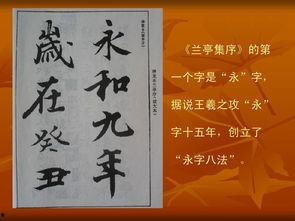 永和九年
歲在癸丑
《兰亭集序》的第
一个字是“永”字,
据说王羲之攻“永”
字十五年，创立了
“永字八法”。